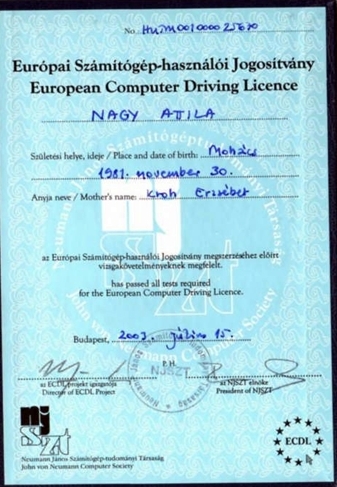 No. HUTM0010000025630
Európai Számítógép-használói Jogosítvány
European Computer Driving Licence
NAGY ATILA
Születési helye, ideje / Place and date of birth: Mohács
1981. november 30.
Anyja neve / Mother's name: Kroh Erzsébet
az Európai Számítógép-használói Jogosítvány megszerzéséhez előírt
vizsgakövetelményeknek megfelelt.
has passed all tests required
for the European Computer Driving Licence.
Budapest, 2003. július 15.
P.H.
NJSZT
az ECDL projekt igazgatója
Director of ECDL Project
az NJSZT elnöke
President of NJSZT
nj
szt
Neumann János Számítógép-tudományi Társaság
John von Neumann Computer Society
ECDL